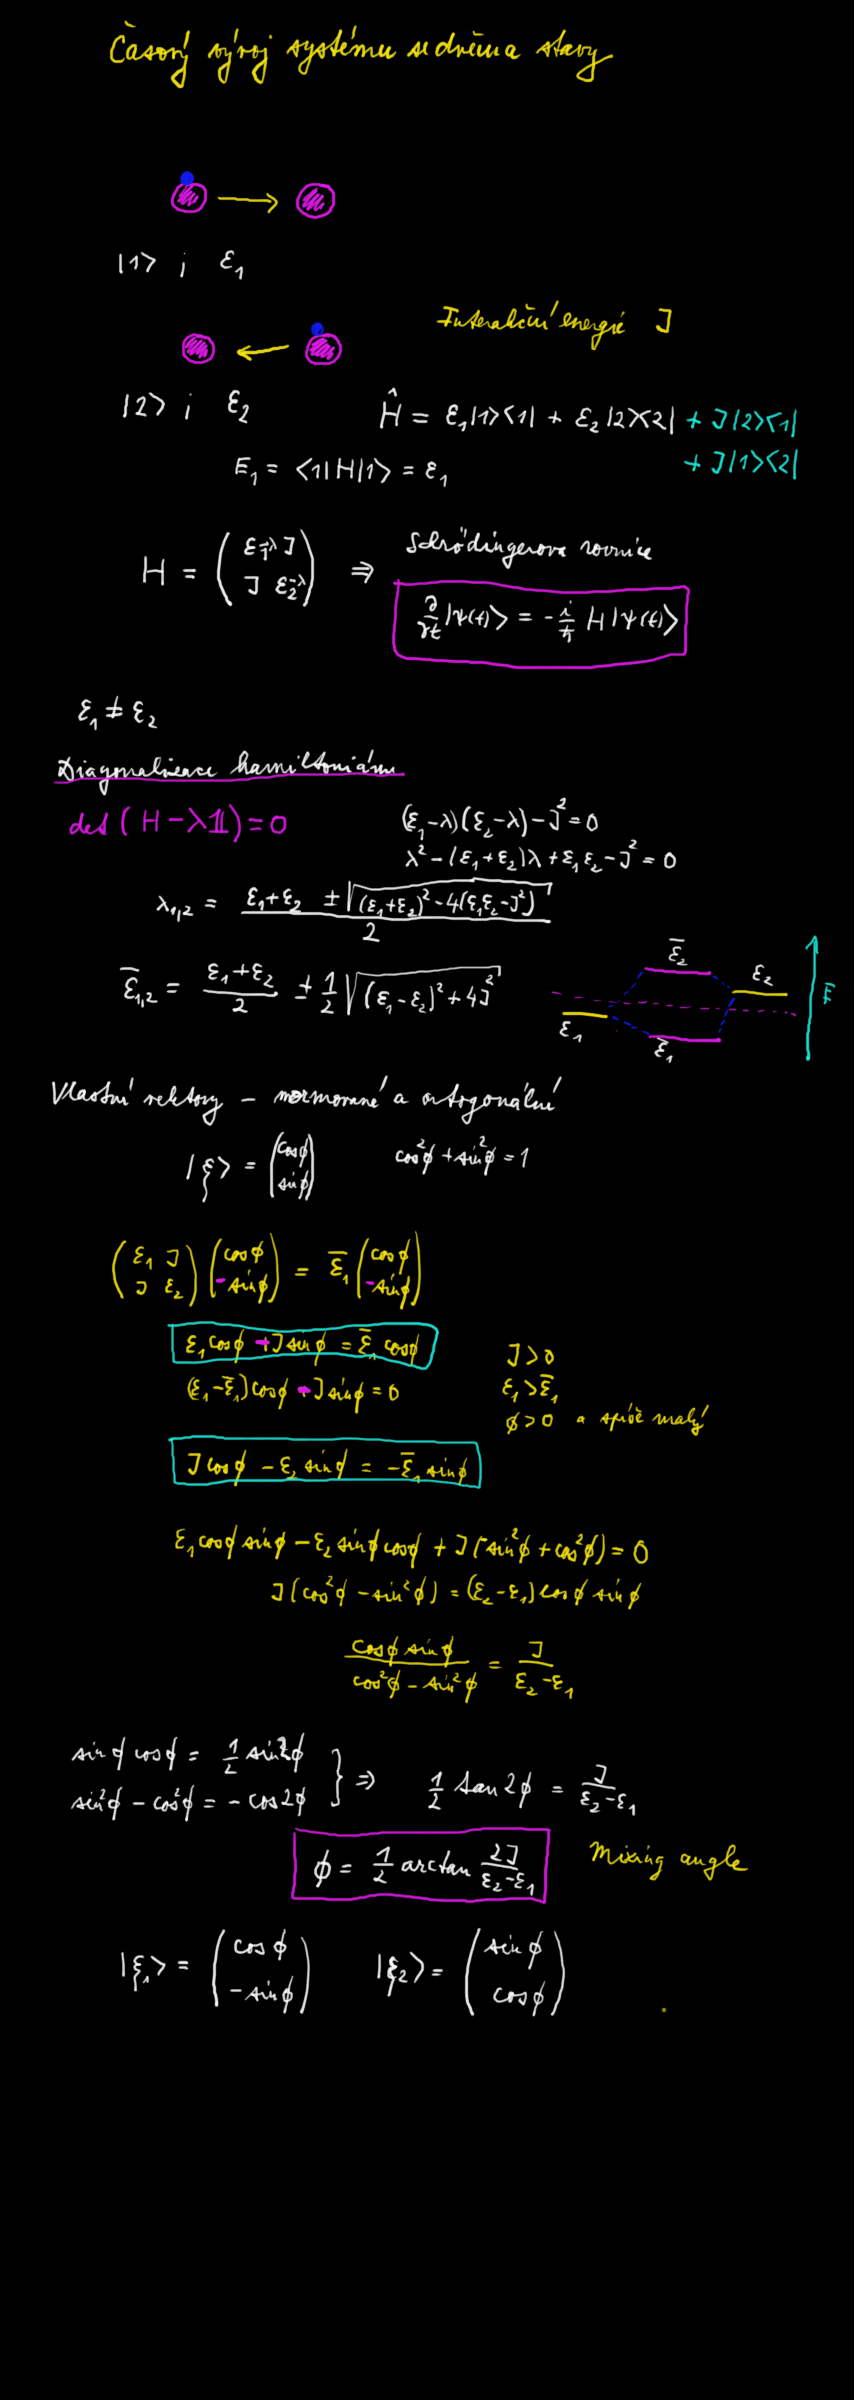 Časový vývoj systému se dvěma stavy
|1> ; ε₁
Interakční energie J
|2> ; ε₂
Ĥ = ε₁|1><1| + ε₂|2><2| + J|2><1|
+ J|1><2|
E₁ = <1|H|1> = ε₁
Schrödingerova rovnice
H = ( ε₁-λ J
J ε₂-λ ) ⇒
∂/∂t |ψ(t)> = - i/ħ H |ψ(t)>
ε₁ ≠ ε₂
Diagonalizace hamiltoniánu
det (H - λ𝟙) = 0
(ε₁-λ)(ε₂-λ) - J² = 0
λ² - (ε₁+ε₂)λ + ε₁ε₂ - J² = 0
λ₁,₂ = (ε₁+ε₂ ± √((ε₁+ε₂)² - 4(ε₁ε₂-J²))) / 2
ε̄₁,₂ = (ε₁+ε₂)/2 ± 1/2 √((ε₁-ε₂)² + 4J²)
ε̄₂
ε₂
E
ε₁
ε̄₁
Vlastní vektory - normované a ortogonální
|ξ> = ( cosφ
sinφ )
cos²φ + sin²φ = 1
( ε₁ J
J ε₂ ) ( cosφ
-sinφ ) = ε̄₁ ( cosφ
-sinφ )
ε₁cosφ - J sinφ = ε̄₁ cosφ
(ε₁-ε̄₁)cosφ - J sinφ = 0
J > 0
ε₁ > ε̄₁
φ > 0 a spíše malý
J cosφ - ε₂ sinφ = -ε̄₁ sinφ
ε₁cosφ sinφ - ε₂ sinφ cosφ + J(sin²φ + cos²φ) = 0
J(cos²φ - sin²φ) = (ε₂-ε₁) cosφ sinφ
cosφ sinφ / (cos²φ - sin²φ) = J / (ε₂-ε₁)
sinφ cosφ = 1/2 sin2φ
sin²φ - cos²φ = - cos2φ } ⇒ 1/2 tan2φ = J / (ε₂-ε₁)
φ = 1/2 arctan 2J / (ε₂-ε₁)
Mixing angle
|ξ₁> = ( cosφ
-sinφ )
|ξ₂> = ( sinφ
cosφ )